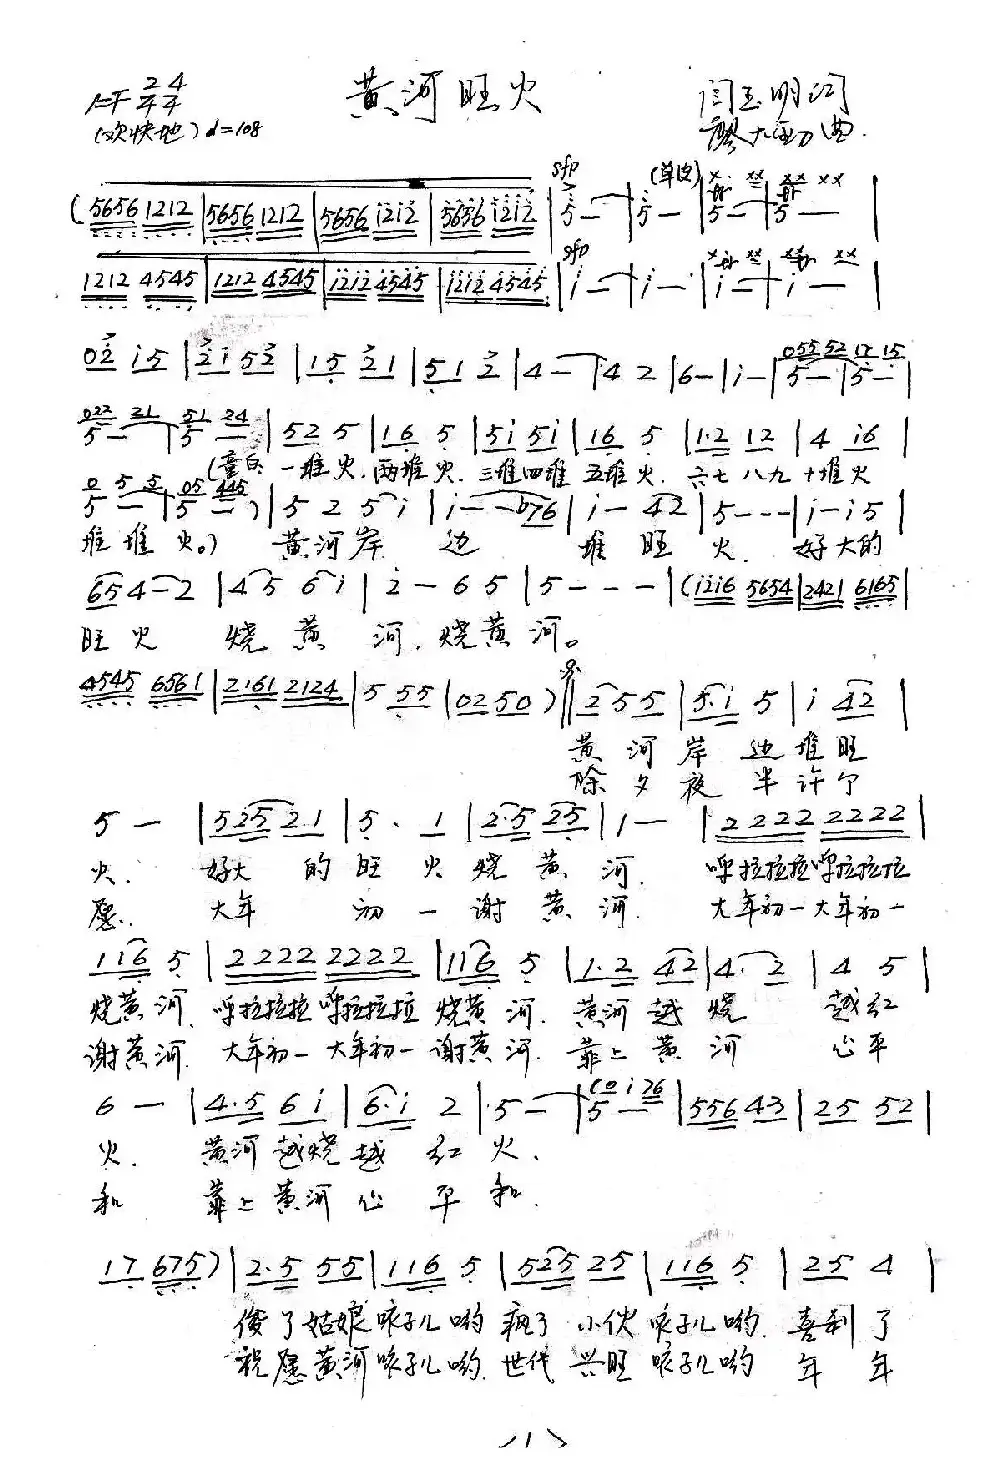 黄河旺火
1=F 2/4 4/4
(欢快地) ♩=108
闫玉明词
廖大勋曲
sfp
(5656 1212 | 5656 1212 | 5656 i2i2 | 5656 i2i2 | 5 — | 5 — | 5 — | 5 — |
sfp
1212 4545 | 1212 4545 | i2i2 4545 | i2i2 4545 | i — | i — | i — | i — |
02 i5 | 2i 52 | 15 21 | 51 2 | 4 — | 4 2 | 6 — | i — | 5 — | 5 — |
022 21 51 24
5 — | 5 — | 52 5 | 16 5 | 5i 5i | 16 5 | 1·2 12 | 4 i6 |
(童白: 一堆火, 两堆火, 三堆四堆 五堆火, 六七八九十堆火
0 5 5 05 445
5 — | 5 — ) | 5 2 5 i | i — — b76 | i — 42 | 5 — — — | i — i 5 |
堆堆火。) 黄河岸 边 堆旺 火. 好大的
65 4 — 2 | 45 6i | 2 — 6 5 | 5 — — — | (i2i6 5654 | 2421 6165 |
旺火 烧黄 河, 烧黄河。
4545 6561 | 2161 2124 | 5 55 | 02 50 ) | 2 55 | 5·i 5 | i 42 |
黄河岸边堆旺
除夕夜半许个
5 — | 525 21 | 5· 1 | 2·5 25 | 1 — | 2222 2222 |
火. 好大的旺火烧黄河. 呼拉拉拉呼拉拉拉
愿. 大年初一谢黄河. 大年初一大年初一
116 5 | 2222 2222 | 116 5 | 1·2 42 | 4· 2 | 4 5 |
烧黄河. 呼拉拉拉呼拉拉拉 烧黄河. 黄河越烧 越红
谢黄河. 大年初一大年初一 谢黄河. 靠上黄河 心平
6 — | 4·5 6i | 6·i 2 | 5 — | 5 — | 556 43 | 25 52 |
(0 i 26
火. 黄河越烧越红火.
和 靠上黄河心平和.
17 675) | 2·5 55 | 116 5 | 525 25 | 116 5 | 25 4 |
俊了姑娘咳子儿哟 疯了小伙咳子儿哟. 喜利了
祝愿黄河咳子儿哟. 世代兴旺咳子儿哟 年年
〈1〉